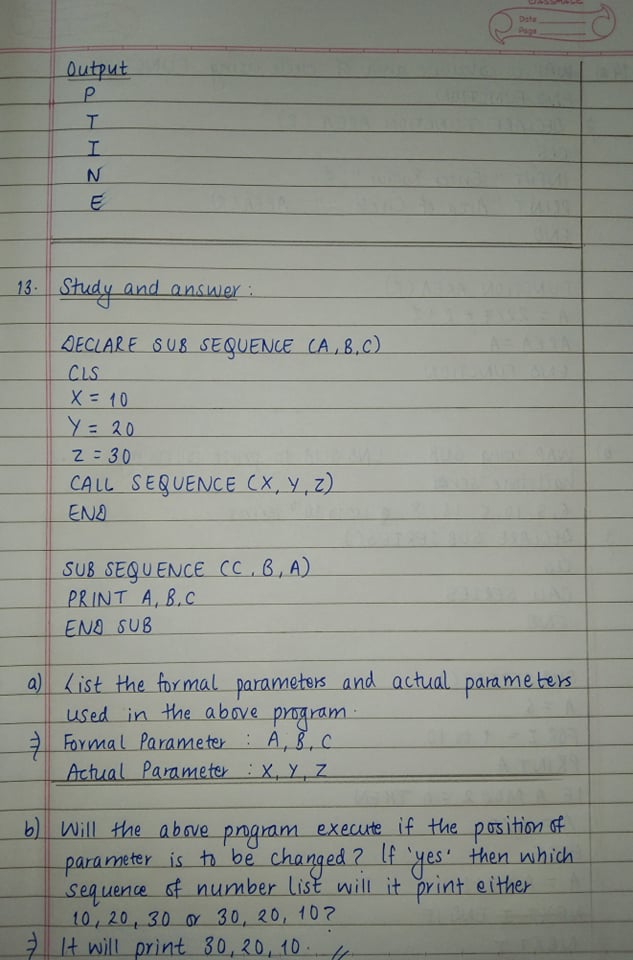 CLASSMATE
Date
Page
Output
P
T
I
N
E
13. Study and answer :
DECLARE SUB SEQUENCE (A, B, C)
CLS
X = 10
Y = 20
Z = 30
CALL SEQUENCE (X, Y, Z)
END
SUB SEQUENCE (C, B, A)
PRINT A, B, C
END SUB
a) List the formal parameters and actual parameters
used in the above program.
⇒ Formal Parameter : A, B, C
Actual Parameter : X, Y, Z
b) Will the above program execute if the position of
parameter is to be changed? If 'yes' then which
sequence of number list will it print either
10, 20, 30 or 30, 20, 10?
⇒ It will print 30, 20, 10.